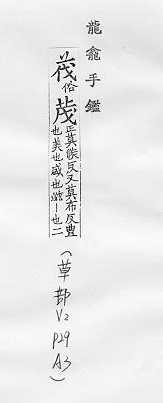 龍龕手鑑
茷俗茂正莫候反又莫布反豊
也美也盛也滋丨也二
(草部 V2 P29 A3)